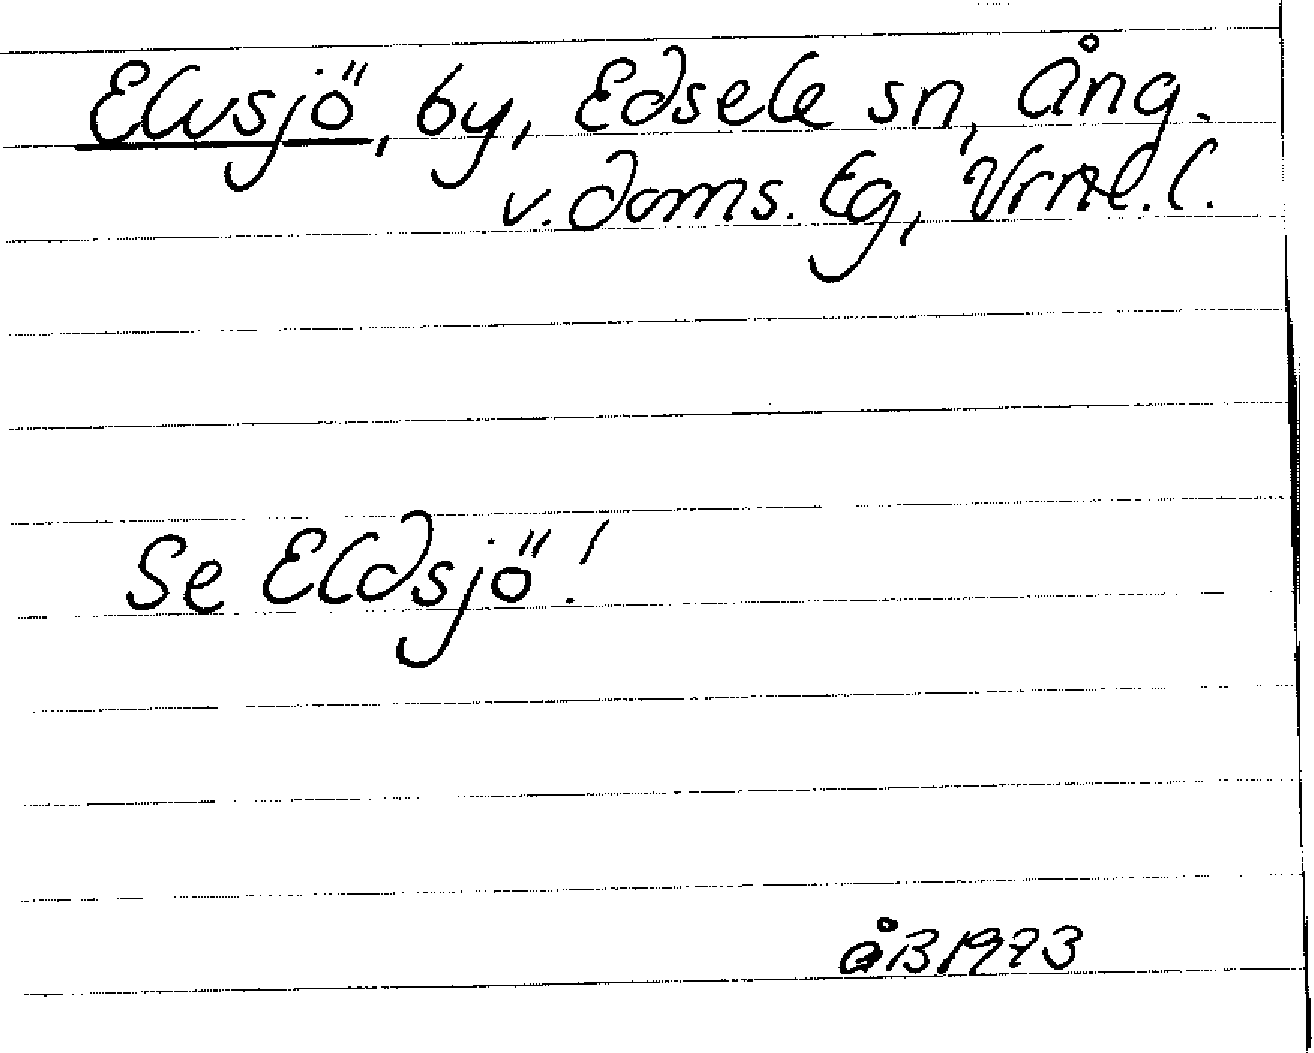 Elvsjö, by, Edsele sn, Ång.
v. doms. tg, Vrnl. l.
Se Eldsjö!
åB 1973